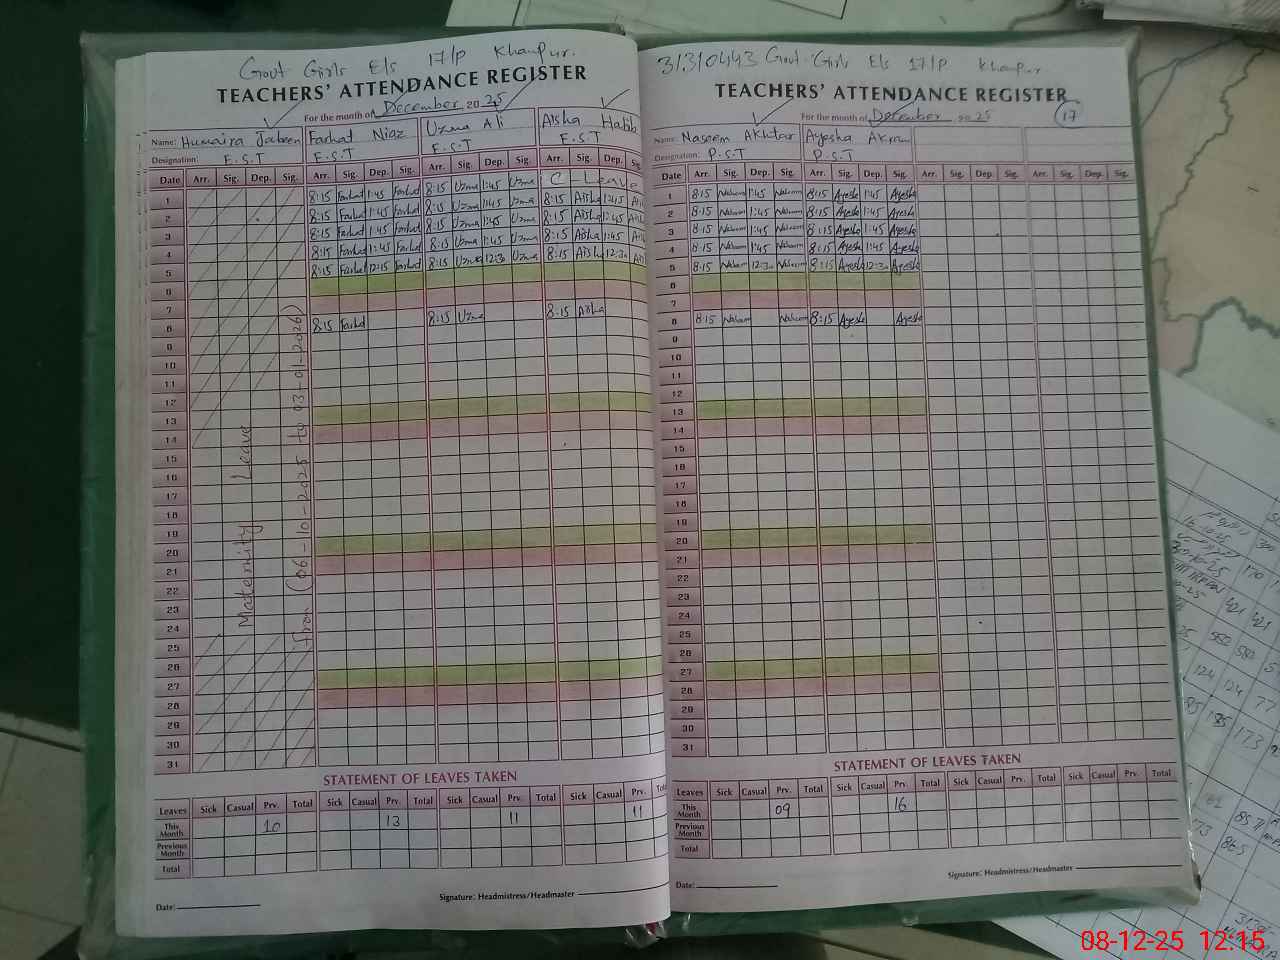 Govt Girls E/s 17/P Khanpur.
TEACHERS' ATTENDANCE REGISTER
For the month of December 2025
Name: Humaira Jabeen Farhat Niaz Uzma Ali Aisha Habib
Designation: E.S.T E.S.T E.S.T E.S.T
Date Arr. Sig. Dep. Sig. Arr. Sig. Dep. Sig. Arr. Sig. Dep. Sig. Arr. Sig. Dep. Sig.
1 8:15 Farhat 1:45 Farhat 8:15 Uzma 1:45 Uzma C-Leave
2 8:15 Farhat 1:45 Farhat 8:15 Uzma 1:45 Uzma 8:15 Aisha 1:45
3 8:15 Farhat 1:45 Farhat 8:15 Uzma 1:45 Uzma 8:15 Aisha 1:45
4 8:15 Farhat 1:45 Farhat 8:15 Uzma 1:45 Uzma 8:15 Aisha 1:45
5 8:15 Farhat 12:15 Farhat 8:15 Uzma 12:30 Uzma 8:15 Aisha 12:30
6
7
8 8:15 Farhat 8:15 Uzma 8:15 Aisha
9
10
11
12
13
14
15
16
17
18
19
20
21
22
23
24
25
26
27
28
29
30
31
Maternity Leave
From (06-10-2025 to 03-01-2026)
STATEMENT OF LEAVES TAKEN
Leaves Sick Casual Prv. Total Sick Casual Prv. Total Sick Casual Prv. Total Sick Casual Prv. Total
This Month 10 13 11 11
Previous Month
Total
Date:
Signature: Headmistress/Headmaster
31310443 Govt. Girls E/s 17/P Khanpur
TEACHERS' ATTENDANCE REGISTER
For the month of December 2025
17
Name: Naseem Akhtar Ayesha Akram
Designation: P.S.T P.S.T
Date Arr. Sig. Dep. Sig. Arr. Sig. Dep. Sig. Arr. Sig. Dep. Sig. Arr. Sig. Dep. Sig.
1 8:15 Naseem 1:45 Naseem 8:15 Ayesha 1:45 Ayesha
2 8:15 Naseem 1:45 Naseem 8:15 Ayesha 1:45 Ayesha
3 8:15 Naseem 1:45 Naseem 8:15 Ayesha 1:45 Ayesha
4 8:15 Naseem 1:45 Naseem 8:15 Ayesha 1:45 Ayesha
5 8:15 Naseem 12:30 Naseem 8:15 Ayesha 12:30 Ayesha
6
7
8 8:15 Naseem Naseem 8:15 Ayesha Ayesha
9
10
11
12
13
14
15
16
17
18
19
20
21
22
23
24
25
26
27
28
29
30
31
STATEMENT OF LEAVES TAKEN
Leaves Sick Casual Prv. Total Sick Casual Prv. Total Sick Casual Prv. Total Sick Casual Prv. Total
This Month 09 16
Previous Month
Total
Date:
Signature: Headmistress/Headmaster
08-12-25 12:15